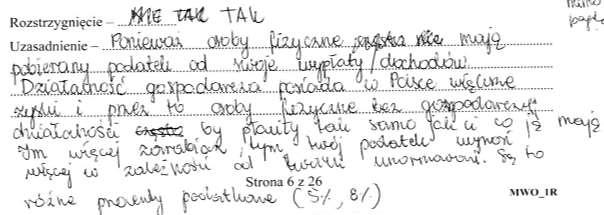 Rozstrzygnięcie – NIE TAK TAK
Uzasadnienie – Ponieważ osoby fizyczne często nie mają
pobierany podatek od swoje wypłaty/dochodów
Działalność gospodarcza posiada w Polsce większe
zyski i przez to osoby fizyczne bez gospodarczej
działalności często by płaciły tak samo jak ci co ją mają
Im więcej zarabiasz, tym twój podatek wynosi
więcej w zależności od unormowani. Są to
różne procenty podatkowe (5%, 8%)
Strona 6 z 26
MWO_1R